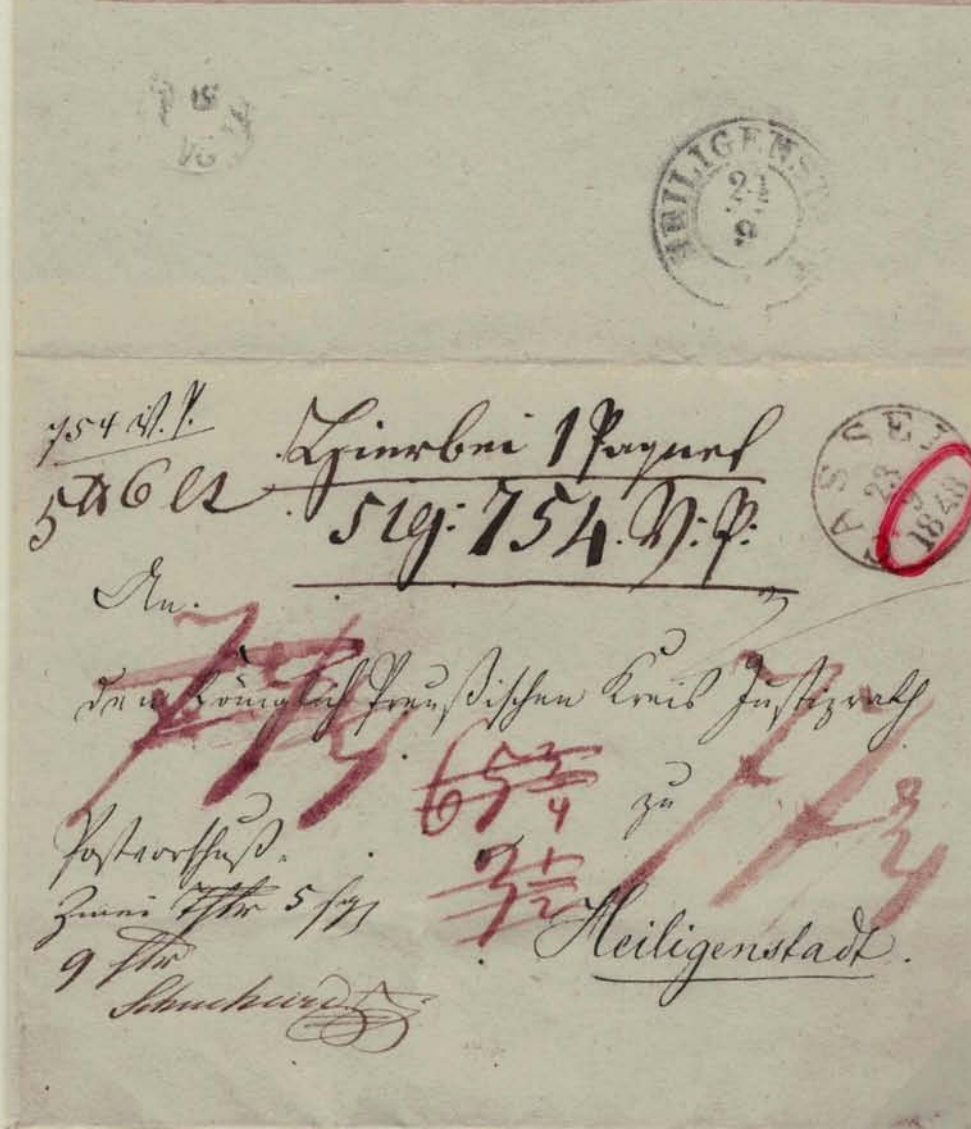 HEILIGENST
24
9
754 V. P.
5 ℔ 6 Lt
Hierbei 1 Paquet
sig: 754. V: P:
CASSEL
23
9
1848
An
den Königlich Preußischen Kreis Justizrath
zu
Heiligenstadt.
6 5 3/4
3 1/2
Postvorschuß.
Zwei Thlr 5 sgr
9 hlr
Schuchard